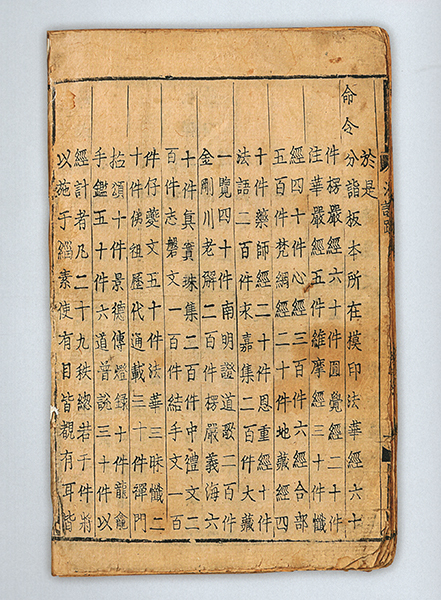 於是
命令分詣板本所在模印法華經六十
件楞嚴經六十件圓覺經二十件
注華嚴經五件維摩經三十件懺
經四十件心經三百件六經合部
五百件梵網經二十件地藏經四
十件藥師經二十件恩重經十件
法語二百件永嘉集二百件大藏
一覽四十件南明證道歌二百件
金剛川老解二百件楞嚴義海六
十件真實珠集二百件中禮文二
百件志磐文一百件結手文一百
件仔夔文五十件法華三昧懺二
十件佛祖歷代通載三十件禪門
拈頌十件景德傳燈錄十件龍龕
手鑑五十件六道普說三十件以
經計者凡二十九秩總若干件將
以施于緇素使有目皆覩有耳皆